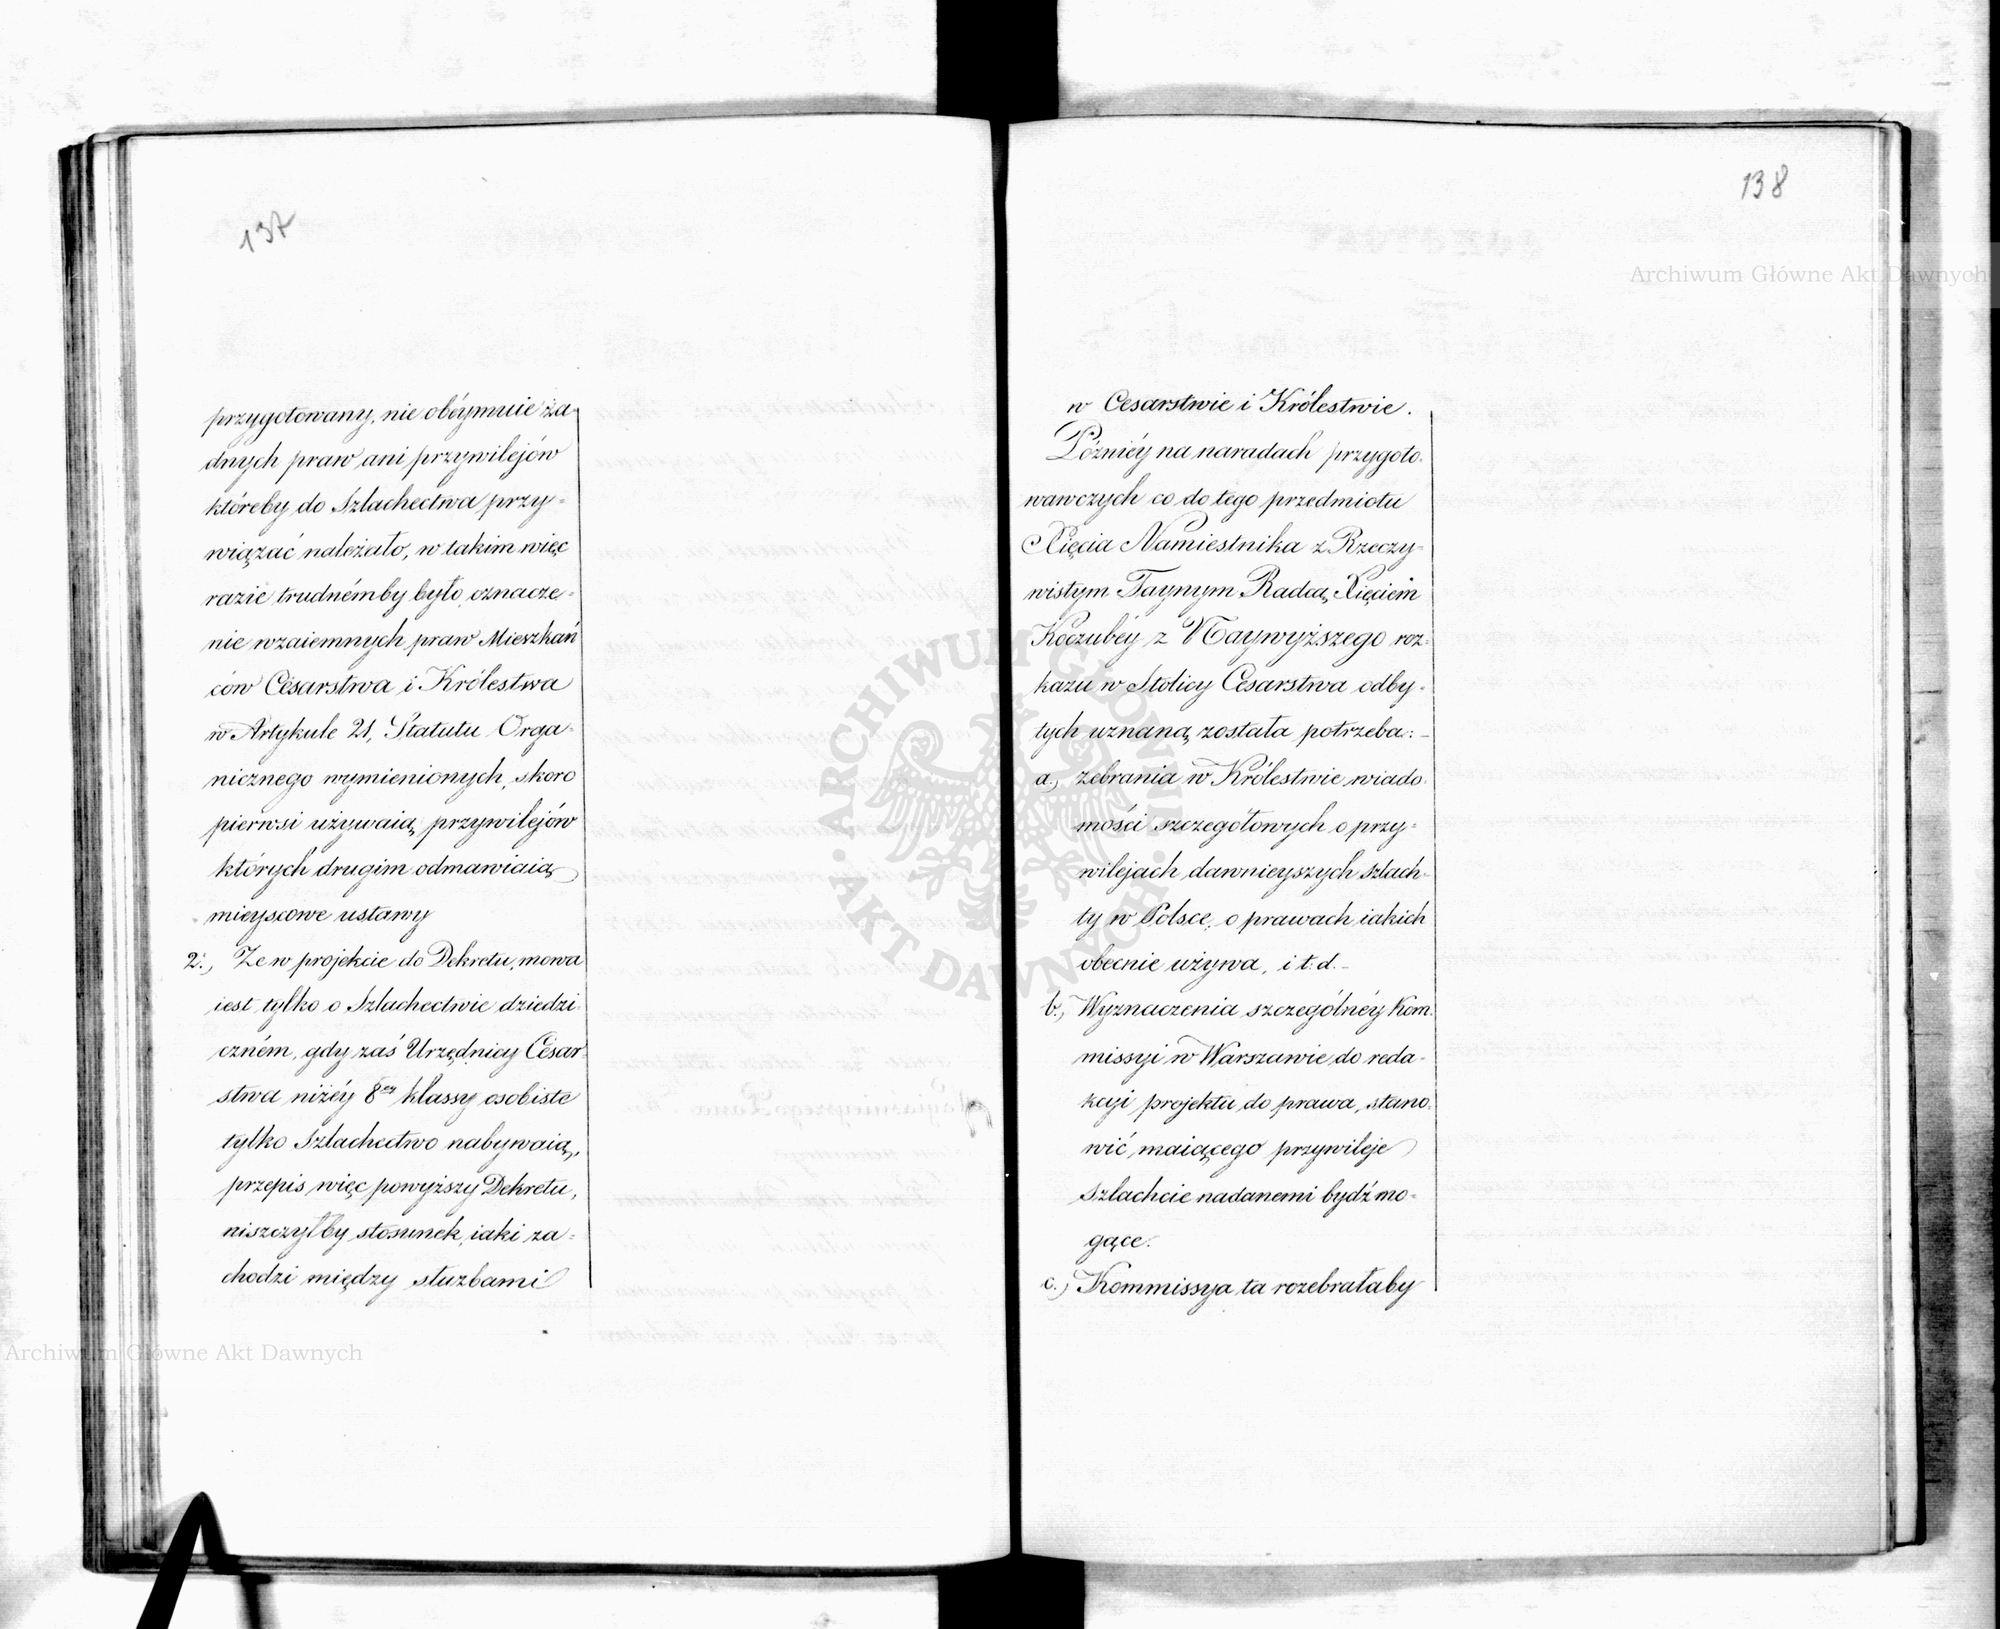 137
przygotowany, nie obéymuie ża-
dnych praw ani przywilejów
któreby do Szlachectwa przy-
wiązać należało, w takim więc
razie trudnémby było, oznacze-
nie wzaiemnych praw Mieszkań
ców Césarstwa i Królestwa
w Artykule 21, Statutu Orga-
nicznego wymienionych, skoro
pierwsi używaią, przywilejów
których drugim odmawiaią
mieyscowe ustawy
2., Że w projekcie do Dekretu, mowa
iest tylko o Szlachectwie dziedzi-
czném, gdy zaś Urzędnicy César-
stwa niżéy 8ey klassy osobiste
tylko Szlachectwo nabywaią,
przepis więc powyższy Dekretu,
niszczyłby stosunek, iaki za-
chodzi między służbami
138
w Cesarstwie i Królestwie.
Późniéy na naradach przygoto-
wawczych co do tego przedmiotu
Xięcia Namiestnika z Rzeczy-
wistym Taynym Radcą, Xięciem
Koczubéy z Naywyższego roz-
kazu w Stolicy Cesarstwa odby-
tych uznaną została potrzeba:-
a., zebrania w Królestwie wiado-
mości szczegółowych o przy-
wilejach dawnieyszych szlach-
ty w Polsce, o prawach iakich
obecnie używa, i t. d.-
b., Wyznaczenia szczególnéy Kom-
missyi w Warszawie do reda-
kcyi projektu do prawa, stano-
wić maiącego przywileje
Szlachcie nadanemi bydź mo-
gące.
c.) Kommissya ta rozebrałaby
Archiwum Główne Akt Dawnych
Archiwum Główne Akt Dawnych
ARCHIWUM GŁÓWNE · AKT DAWNYCH ·